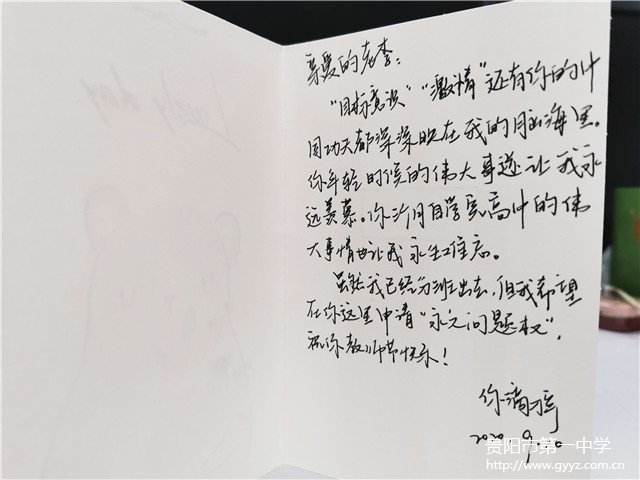 亲爱的老李：
"目标意识""激情"还有你的什
用功夫都深深映在我的脑海里。
你年轻时候的伟大事迹让我永
远羡慕。你 自学完高中的伟
大事情也让我永生难忘。
虽然我已经分班出去，但我希望
在你这里申请"永久问题权"，
祝你教师节快乐！
你滴
2020.9.10
贵阳市第一中学
www.gyyz.com.cn